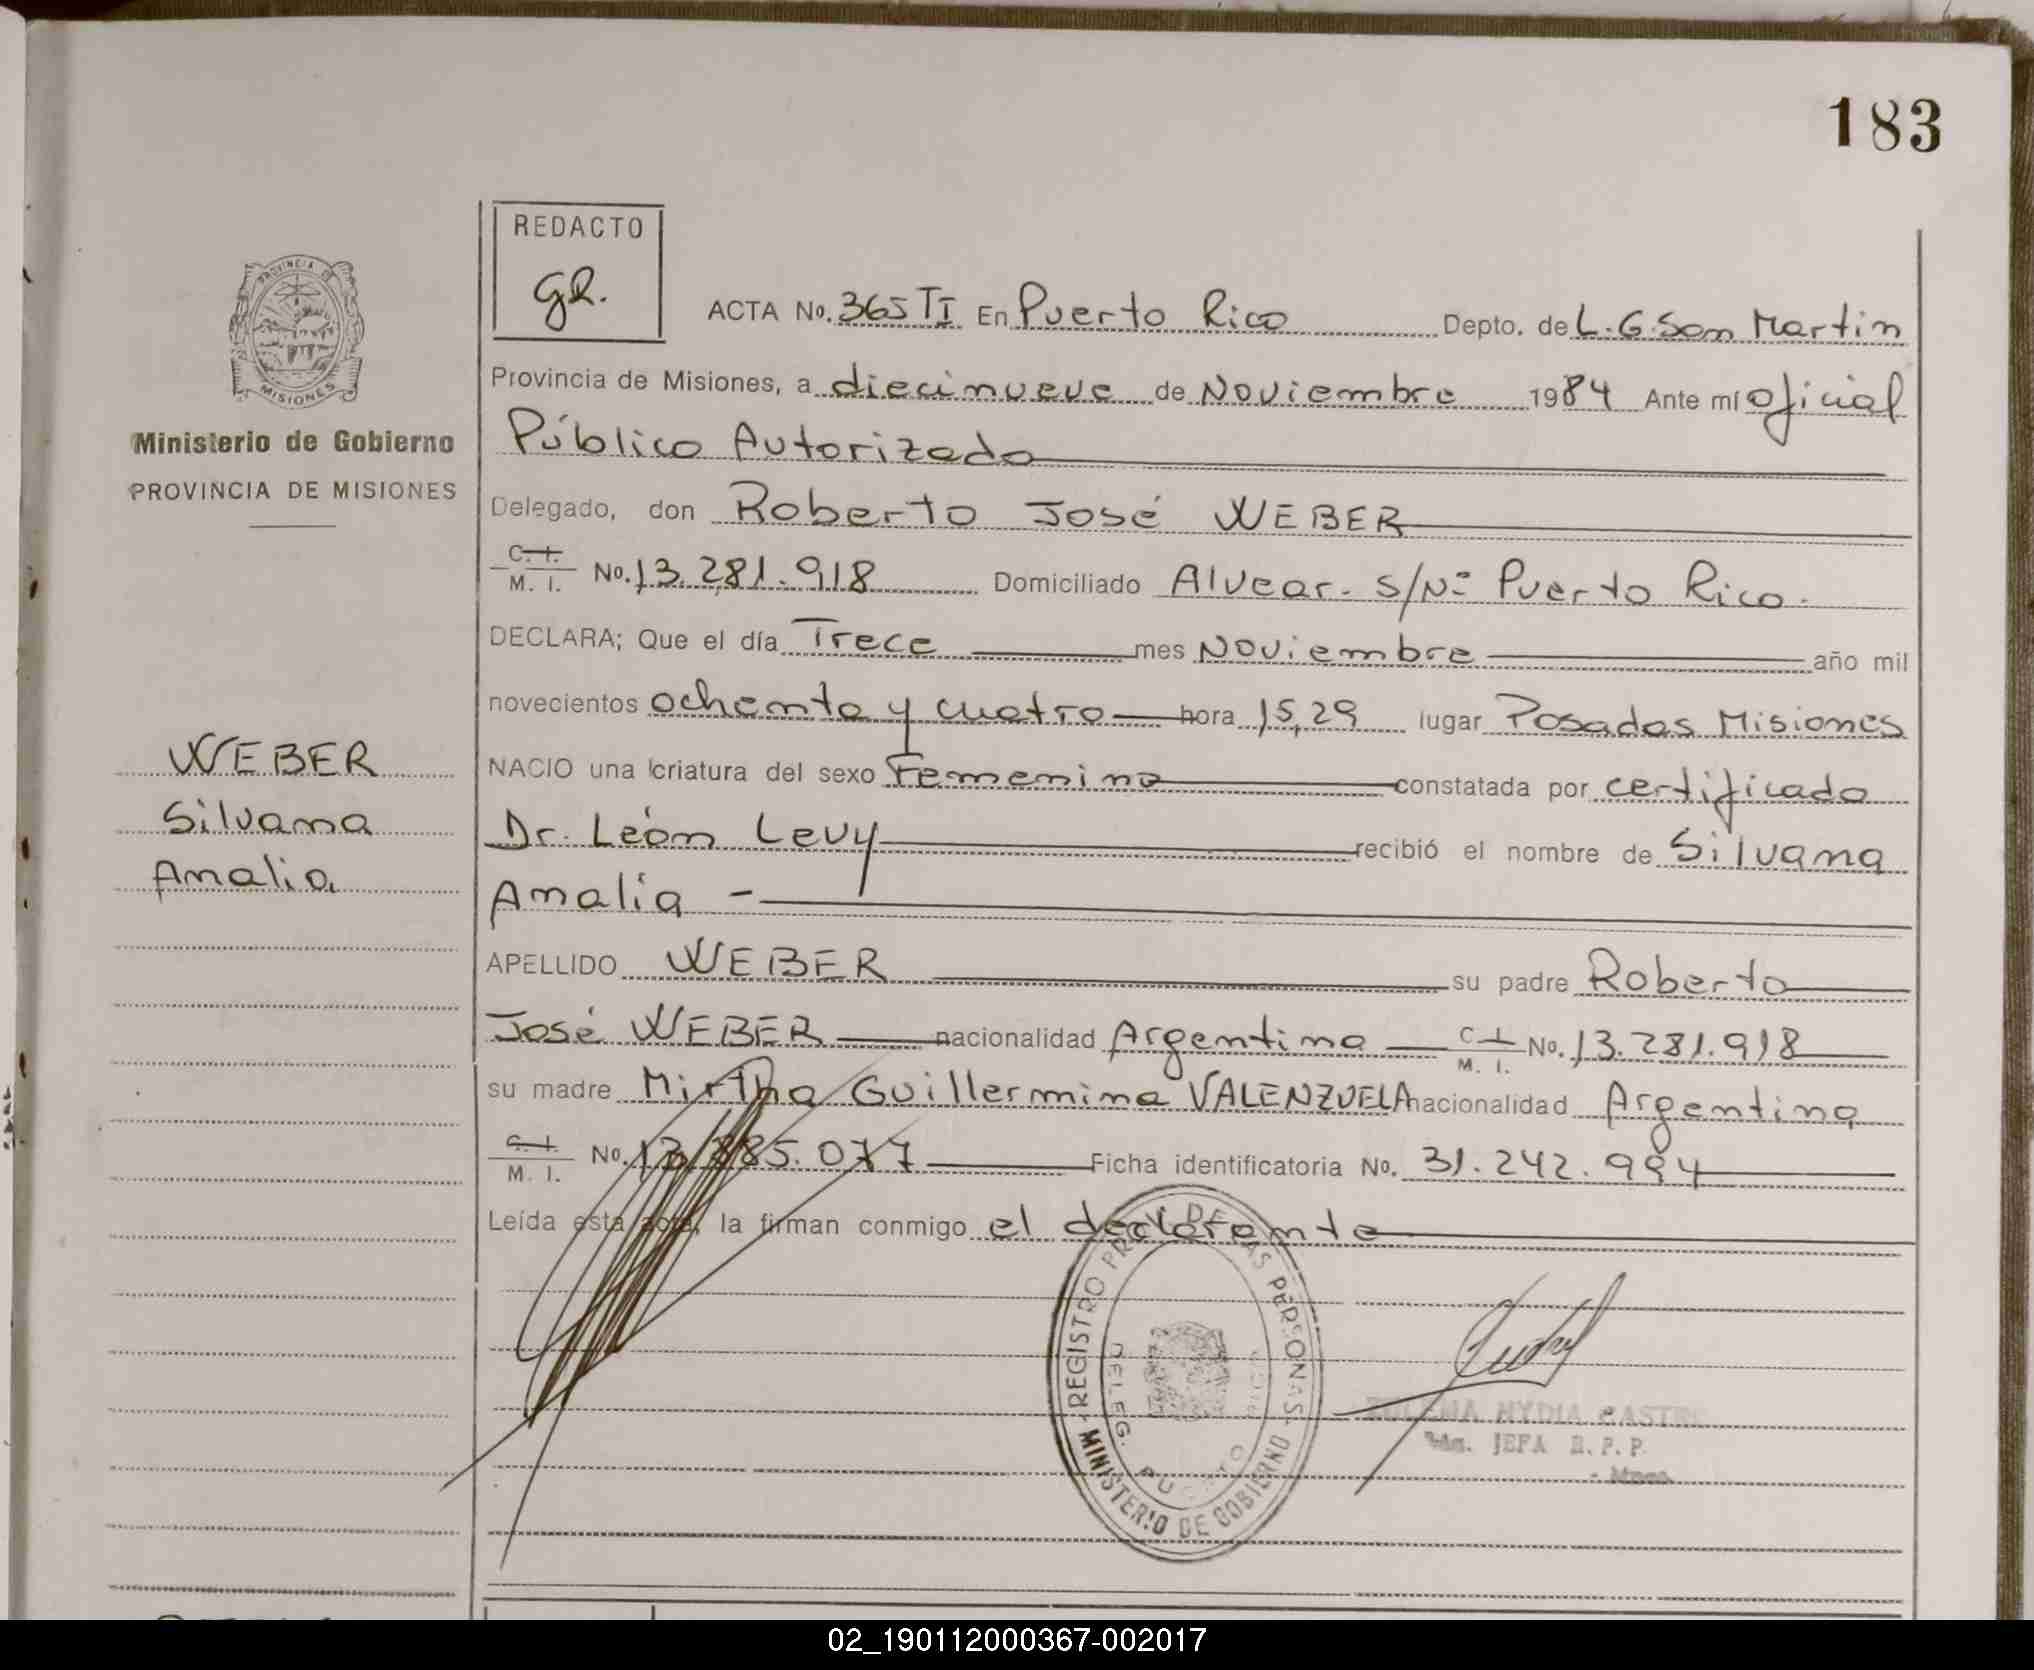 183
REDACTO
gR.
PROVINCIA DE
MISIONES
ACTA No. 365 TI En Puerto Rico Depto. de L. G. San Martin
Provincia de Misiones, a diecinueve de Noviembre 1984 Ante mí oficial
Ministerio de Gobierno
Público Autorizado
PROVINCIA DE MISIONES
Delegado, don Roberto José WEBER
C. I. M. I. No. 13.281.918 Domiciliado Alvear. s/Nº Puerto Rico.
DECLARA; Que el día Trece mes Noviembre año mil
novecientos ochenta y cuatro hora 15,29 lugar Posadas Misiones
WEBER
NACIO una criatura del sexo Femenino constatada por certificado
Silvana
Dr. León Levy recibió el nombre de Silvana
Amalia
Amalia -
APELLIDO WEBER su padre Roberto
José WEBER nacionalidad Argentina C. I. M. I. No. 13.281.918
su madre Mirtha Guillermina VALENZUELA nacionalidad Argentina
C. I. M. I. No. 885.077 Ficha identificatoria No. 31.242.994
Leída esta acta, la firman conmigo el declarante
REGISTRO PROV. DE LAS PERSONAS
DELEG. PUERTO RICO
MINISTERIO DE GOBIERNO
NYDIA CASTRO
JEFA R. P. P.
02_190112000367-002017